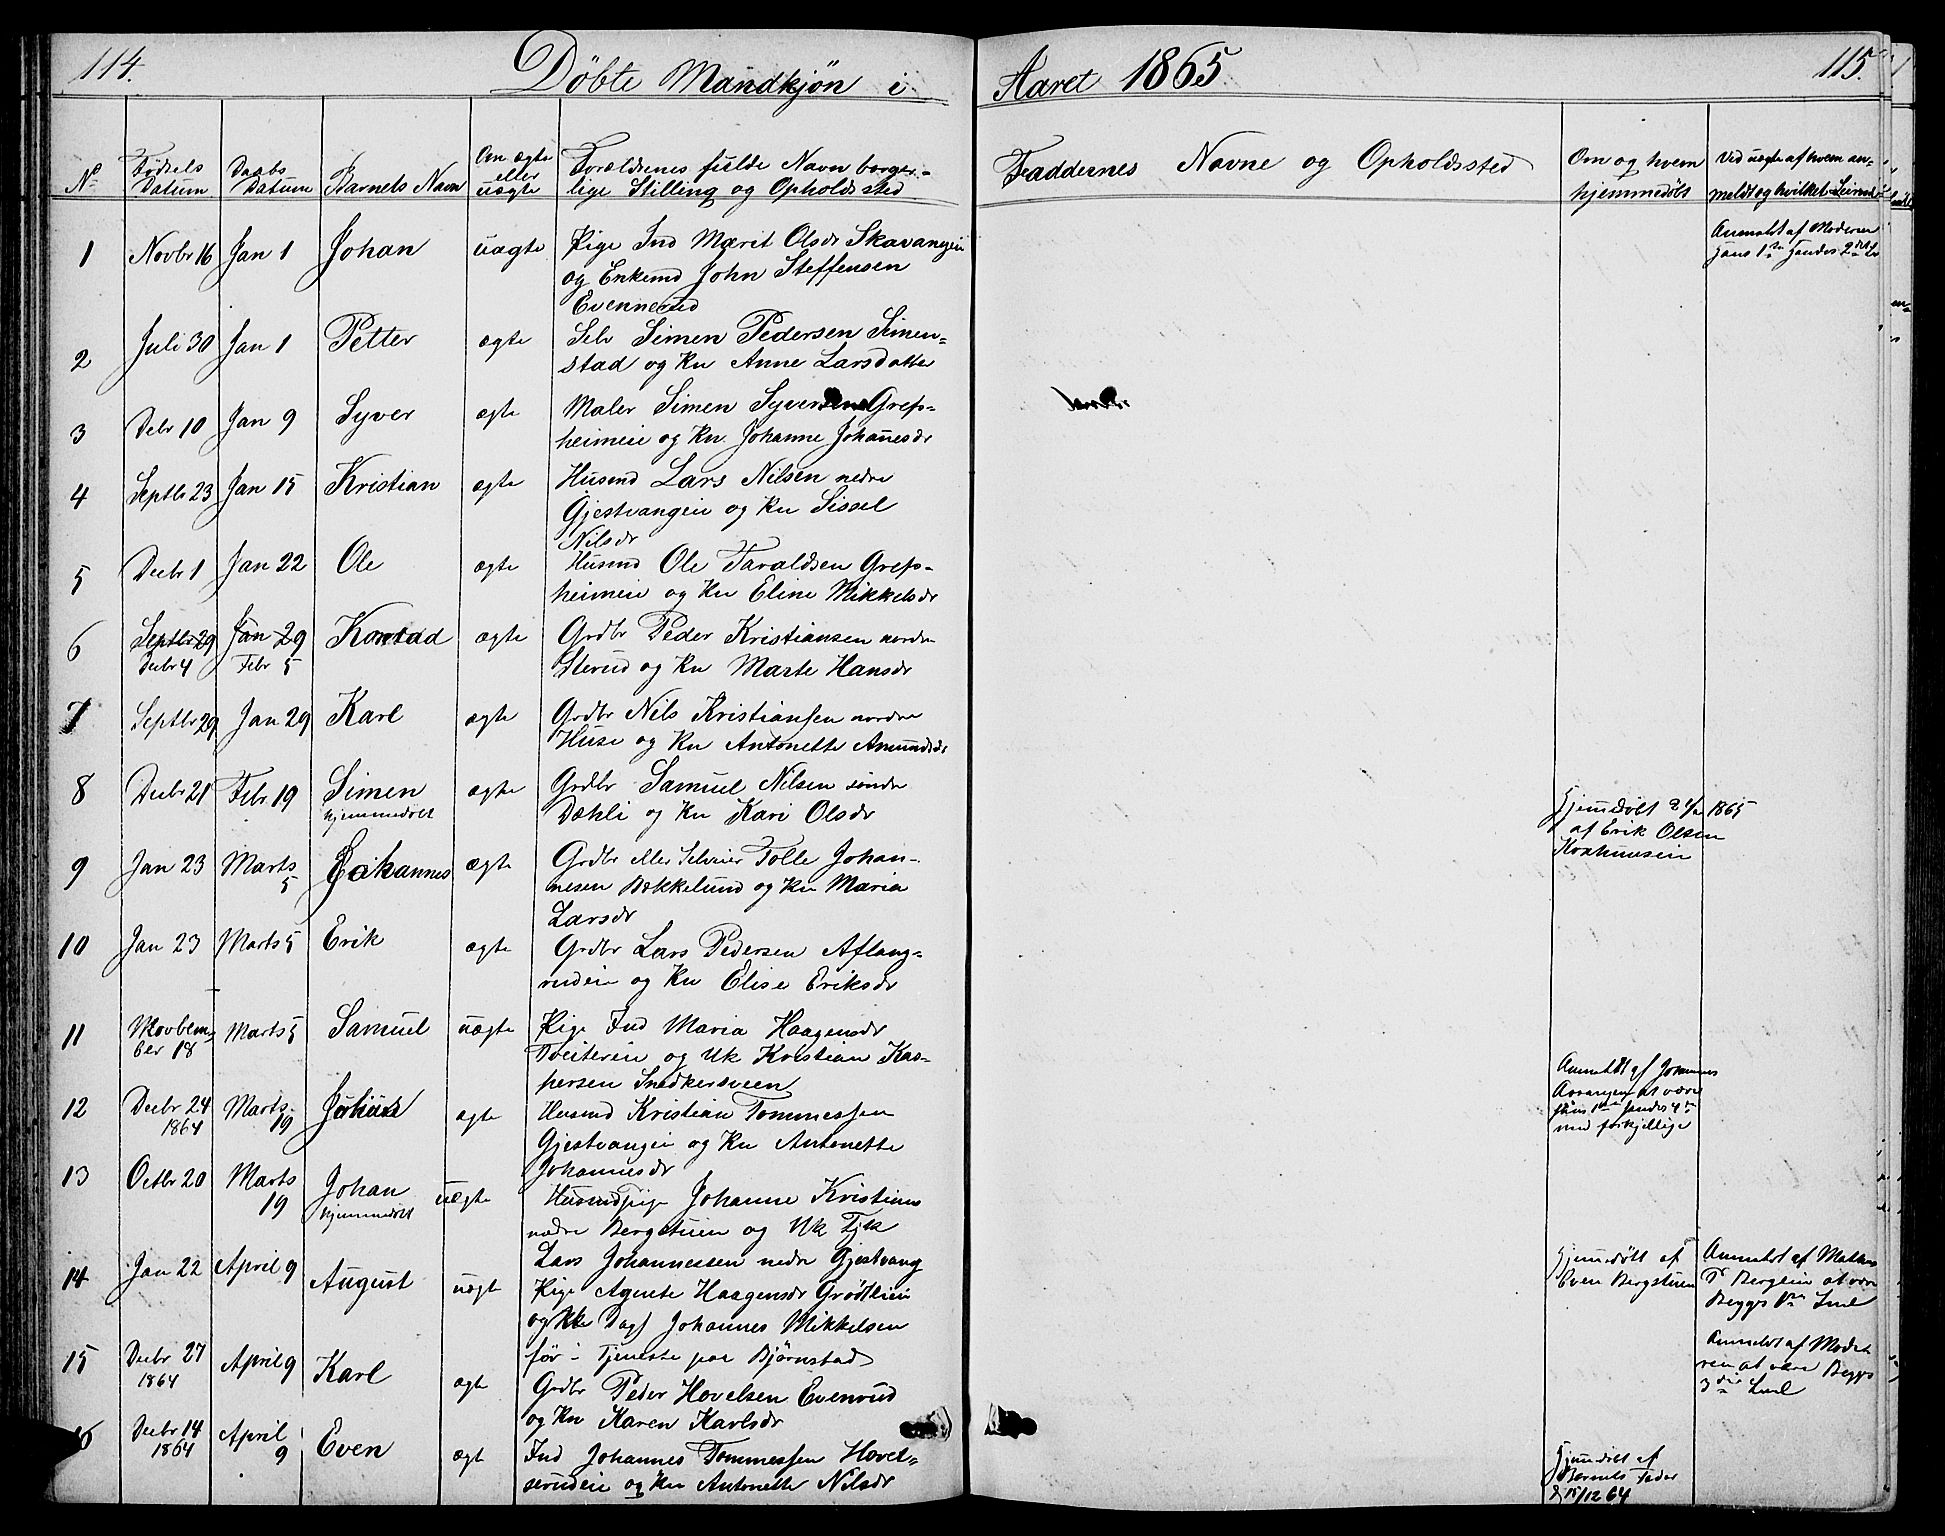 114.
Døbte Mandkjøn i
Aaret 1865
115.
No
Fødsels Datum
Daabs Datum
Barnets Navn
Om ægte eller uægte
Forældrenes fulde Navn borger-
lige Stilling og Opholdssted
Faddernes Navne og Opholdssted
Om og hvem
hjemmedøbt
Ved uægte af hvem an-
meldt og hvilket Leiermaal
1 Novbr 16 Jan 1 Johan uægte Pige Ind Marit Olsdr Skavangeie
og Enkemd John Steffensen
Evennerud
Anmeldt af Moderen
hans 1ste hendes 2det L
2 Juli 30 Jan 1 Petter ægte Selv Simen Pedersen Simen-
stad og Kn Anne Larsdatter
3 Debr 10 Jan 9 Syver ægte Maler Simen Syversen Grefs-
heimeie og Kn. Johanne Johanesdr
4 Septbr 23 Jan 15 Kristian ægte Husmd Lars Nilsen nedre
Gjestvangeie og Kn Sissel
Nilsdr
5 Decbr 1 Jan 22 Ole ægte Husmd Ole Taraldsen Grefs-
heimeie og Kn Eline Mikkelsdr
6 Septbr 29 Jan 29 Konrad ægte Grdbr Peder Kristiansen nordre
Decbr 4 Febr 5 Sterud og Kn Marte Hansdr
7 Septbr 29 Jan 29 Karl ægte Grdbr Nils Kristiansen nordre
Huse og Kn Antonette Amundsdr
8 Decbr 21 Febr 19 Simen ægte Grdbr Samuel Nilsen søndre
hjemmedøbt Dæhli og Kn Kari Olsdr
Hjemdøbt 2 1/2 1865
af Erik Olsen
9 Jan 23 Marts 5 Johannes ægte Grdbr eller Selveier Tolle Johan-
nesen Bækkelund og Kn Maria
Larsdr
10 Jan 23 Marts 5 Erik ægte Grdbr Lars Pedersen Aflang-
rudeie og Kn Elise Eriksdr
11 Novbem- Marts 5 Samuel uægte Pige Ind Maria Haagensdr
ber 18 Tveitereie og Uk Kristian Kas-
persen Snedkersveen
Anmeldt af Johannes
at være
hans 1ste hendes 4de
med forskjellige
12 Decbr 24 Marts 19 Julius ægte Husmd Kristian Tommessen
1864 Gjestvangeie og Kn Antonette
Johannesdr
13 Octbr 20 Marts 19 Johan uægte Husmdpige Johanne Kristians
hjemmedøbt nedre Bergstuen og Uk Tjk
Lars Johannessen nedre Gjestvang
Hjemmedøbt af
Even Bergstuen
Anmeldt af Mathias
P Berglein at være
Begges 1ste Leml
14 Jan 22 April 9 August uægte Pige Agnete Haagensdr Grødtlien
og Uk Dag) Johannes Mikkelsen
før i Tjeneste paa Bjørnstad
Anmeldt af Mode-
ren at være Begges
3die Leml
15 Decbr 27 April 9 Karl ægte Grdbr Peder Hovelsen Evenrud
1864 og Kn Karen Karlsdr
16 Decbr 14 April 9 Even ægte Ind Johannes Tommessen Hovel-
1864 serudeie og Kn Antonette Nilsdr
Hjemdøbt af
Barnets Fader
d 15/12 64